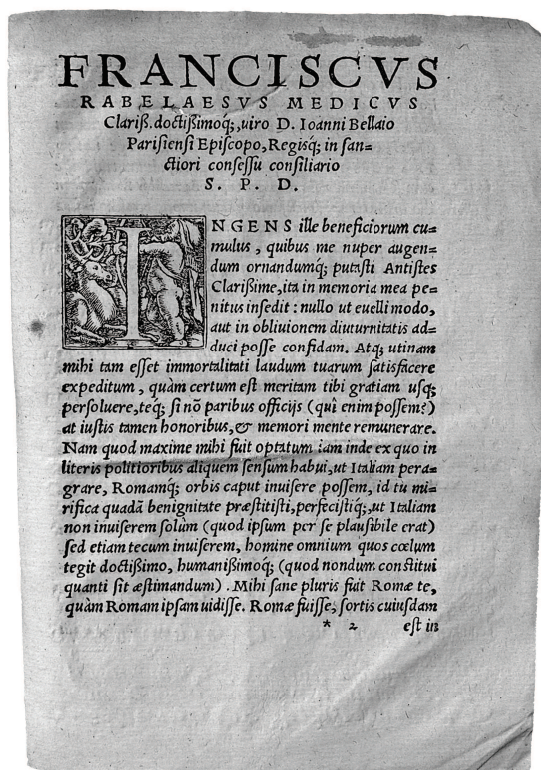 FRANCISCVS
RABELAESVS MEDICVS
Clariß. doctißimoq;, uiro D. Ioanni Bellaio
Parisiensi Episcopo, Regisq; in san=
ctiori consessu consiliario
S. P. D.
INGENS ille beneficiorum cu=
mulus, quibus me nuper augen=
dum ornandumq; putasti Antistes
Clarißime, ita in memoria mea pe=
nitus insedit: nullo ut euelli modo,
aut in obliuionem diuturnitatis ad=
duci posse confidam. Atq; utinam
mihi tam esset immortalitati laudum tuarum satisfacere
expeditum, quàm certum est meritam tibi gratiam usq;
persoluere, teq; si nõ paribus officijs (quî enim possem?)
at iustis tamen honoribus, & memori mente remunerare.
Nam quod maxime mihi fuit optatum iam inde ex quo in
literis politioribus aliquem sensum habui, ut Italiam pera=
grare, Romamq; orbis caput inuisere possem, id tu mi=
rifica quadã benignitate præstitisti, perfecistiq;, ut Italiam
non inuiserem solùm (quod ipsum per se plausibile erat)
sed etiam tecum inuiserem, homine omnium quos cœlum
tegit doctißimo, humanißimoq; (quod nondum constitui
quanti sit æstimandum). Mihi sane pluris fuit Romæ te,
quàm Romam ipsam uidisse. Romæ fuisse, sortis cuiusdam
* 2 est in